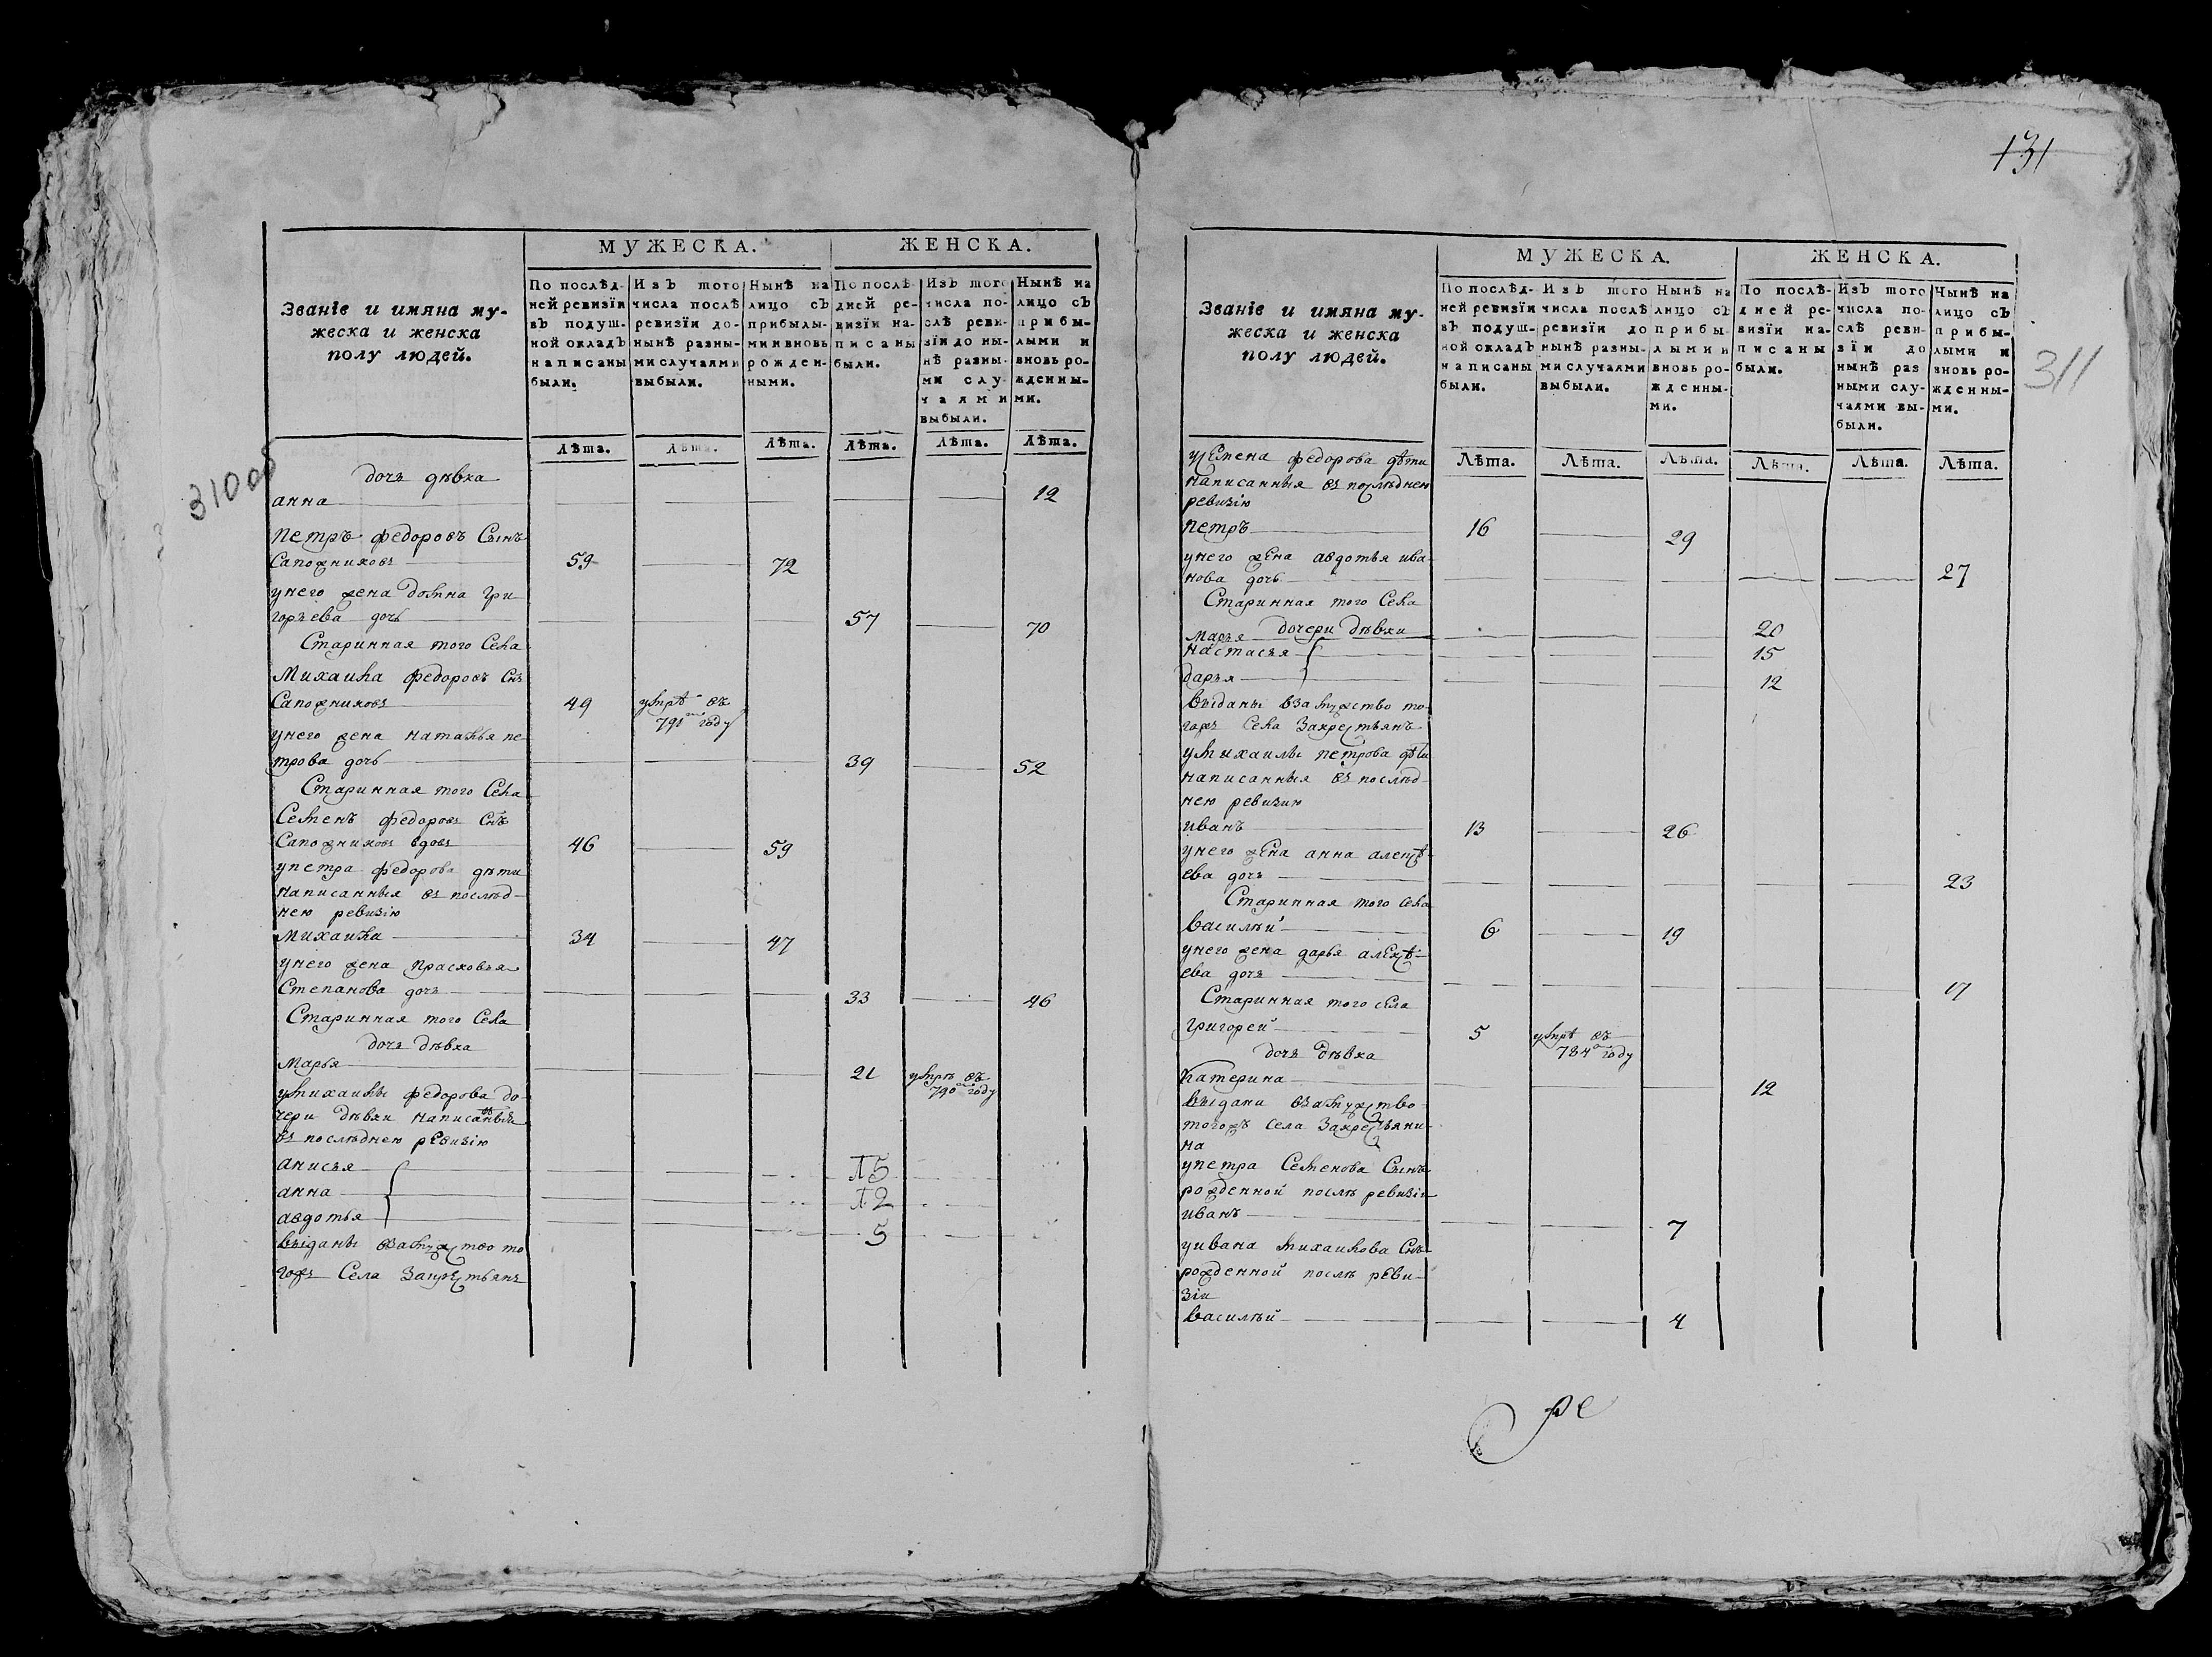 310 об
МУЖЕСКА. ЖЕНСКА.
Званіе и имяна му-
жеска и женска
полу людей.
По послѣд-
ней ревизїи
въ подуш-
ной окладъ
написаны
были.
Изъ того
числа послѣ
ревизїи до-
нынѣ разны-
ми случаями
выбыли.
Нынѣ на
лицо съ
прибылы-
ми и вновь
рожден-
ными.
По послѣ-
дней ре-
визїи на-
писаны
были.
Изъ того
числа по-
слѣ реви-
зїи до ны-
нѣ разны-
ми слу-
чаями
выбыли.
Нынѣ на
лицо съ
прибы-
лыми и
вновь ро-
жденны-
ми.
Лѣта. Лѣта. Лѣта. Лѣта. Лѣта. Лѣта.
дочь дѣвка
анна 12
Петръ федоровъ Сынъ
Сапожниковъ 59 72
унего жена домна гри
горьева дочь 57 70
Старинная того Села
Михаила федоровъ Снъ
Сапожниковъ 49 умрѣ въ
791 году
унего жена наталья пе-
трова дочь 39 52
Старинная того Села
Семенъ федоровъ Снъ
Сапожниковъ вдовъ 46 59
упетра федорова дѣти
написанныя въ послѣд-
нею ревизію
Михаила 34 47
унего жена прасковья
Степанова дочь 33 46
Старинная того Села
дочь дѣвка
Марья 21 умрѣ въ
790 году
умихаилы федорова до-
чери дѣвки написаныя
въ послѣднею ревизію
анисья 15
анна 12
авдотья 5
выданы взамужство то
гожъ Села закрестьянъ
131
311
МУЖЕСКА. ЖЕНСКА.
Званіе и имяна му-
жеска и женска
полу людей.
По послѣд-
ней ревизїи
въ подуш-
ной окладъ
написаны
были.
Изъ того
числа послѣ
ревизїи до
нынѣ разны-
ми случаями
выбыли.
Нынѣ на
лицо съ
прибы-
лыми и
вновь ро-
жденны-
ми.
По послѣ-
дней ре-
визїи на-
писаны
были.
Изъ того
числа по-
слѣ реви-
зїи до
нынѣ раз
ными слу-
чаями вы-
были.
Нынѣ на
лицо съ
прибы-
лыми и
вновь ро-
жденны-
ми.
Лѣта. Лѣта. Лѣта. Лѣта. Лѣта. Лѣта.
усемена федорова дѣти
написанныя въ послѣднею
ревизію
петръ 16 29
унего жена авдотья ива
нова дочь 27
Старинная того Села
дочери дѣвки
Марья 20
настасья 15
дарья 12
выданы взамужство то-
гожъ Села закрестьянъ
умихаилы петрова дѣти
написанныя въ послѣд-
нею ревизию
иванъ 13 26
унего жена анна алексѣ-
ева дочь 23
Старинная того села
василѣй 6 19
унего жена дарья алексѣ-
ева дочь 17
Старинная того села
григорей 5 умрѣ въ
784 году
дочь дѣвка
катерина 12
выдана взамужство
тогожъ села закрестьяни-
на
упетра Семенова Сынъ
рожденной послѣ ревизіи
иванъ 7
уивана михаилова Снъ
рожденной послѣ реви-
зіи
василѣй 4